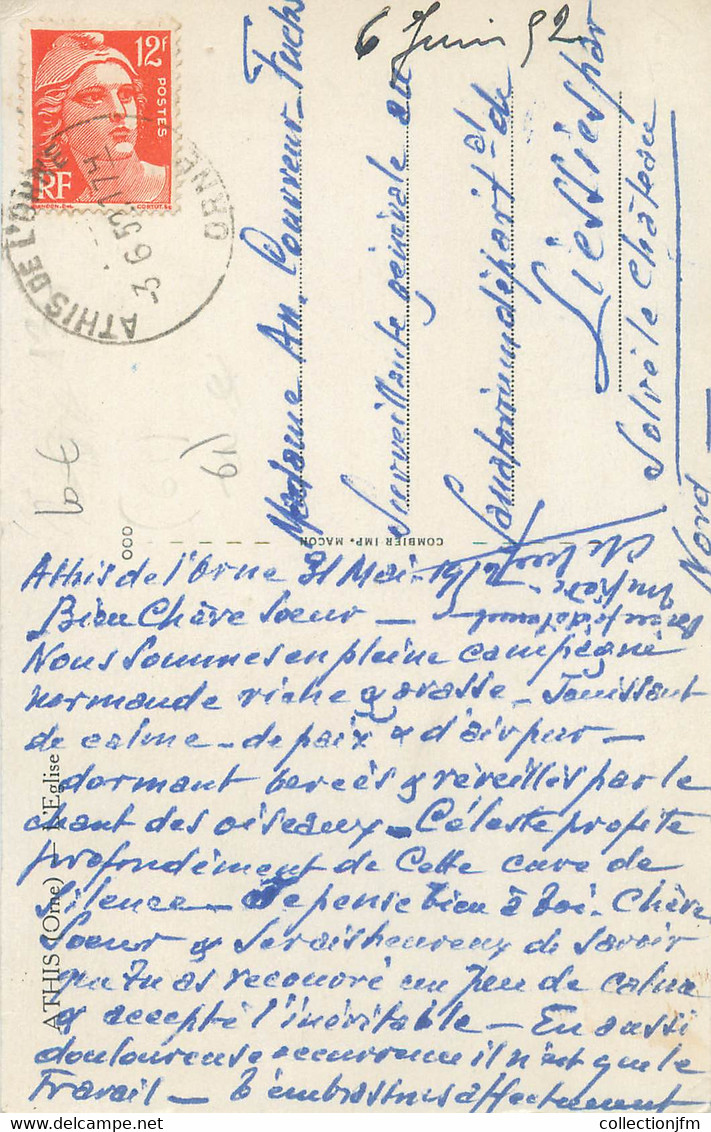 6 Juin 52
12F
POSTES
RF
ATHIS DE L'ORNE
ORNE
3 6 52
Madame An. Couvreur-Fuchs
Surveillante générale au
Sanatorium départ^al de
Liessies par
Solre le Château
Nord
19)
COMBIER IMP. MACON
ATHIS (Orne) — L'Eglise
Athis de l'Orne 31 Mai - 1952
Bien Chère Soeur —
Nous sommes en pleine campagne
normande riche & grasse - Jouissant
de calme - de paix & d'air pur -
dormant bercés & réveillés par le
chant des oiseaux - Céleste profite
profondément de cette cure de
silence - Je pense bien à toi - Chère
Soeur & serais heureux de savoir
que tu as recouvré un peu de calme
& accepté l'inévitable - En aussi
douloureuse occurrence il n'est que le
Travail - t'embrassons affectueusement
collectionjfm